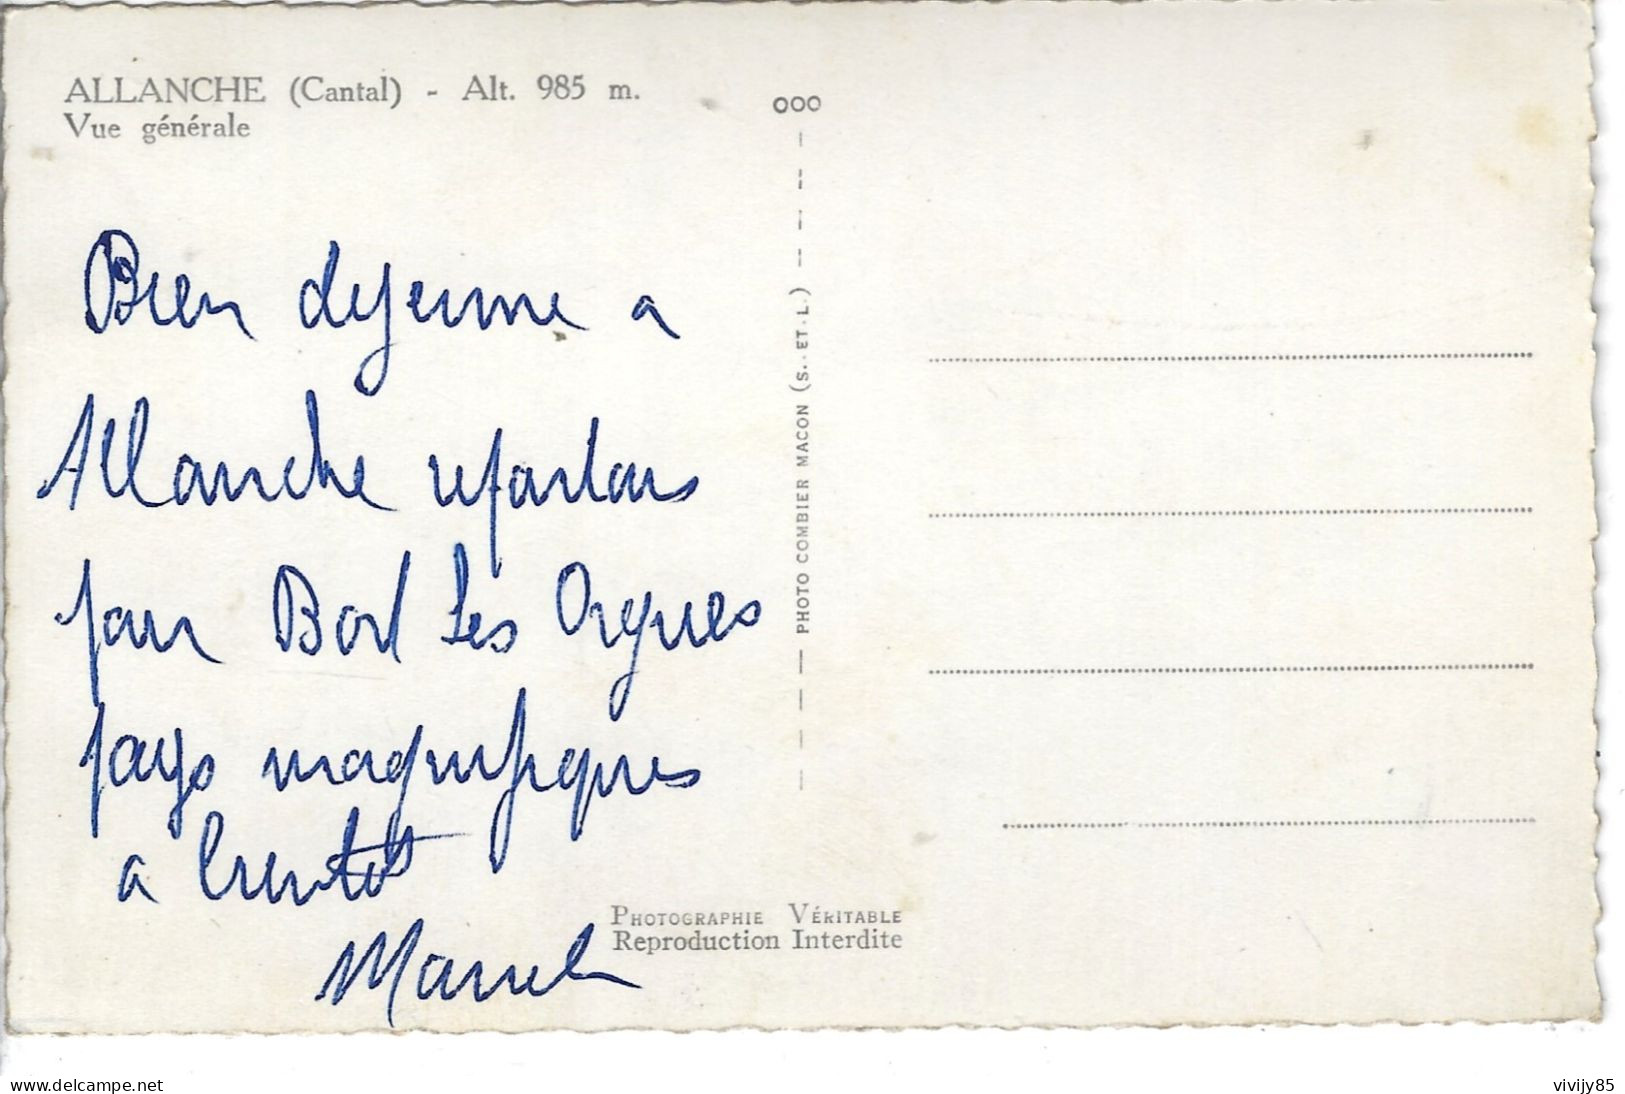 ALLANCHE (Cantal) - Alt. 985 m.
Vue générale
Bien dejeune a
Allanche repartons
par Bort Les Orgues
pays magnifiques
a bientot
Marcel
000
PHOTO COMBIER MACON (S. ET. L.)
PHOTOGRAPHIE VÉRITABLE
Reproduction Interdite
delcampe.net
vivijy85